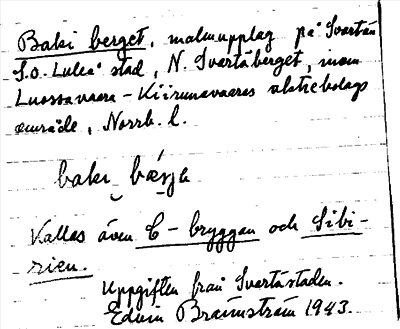 Baki berget, malmupplag på Svartön
S.o. Luleå stad, N. Svartåberget, inom
Luossavaara-Kiirunavaaras aktiebolags
område, Norrb. l.
baki
Kallas även C-bryggan och Sibi-
rien.
Uppgiften från Svartöstaden.
Edvin Brännström 1943.